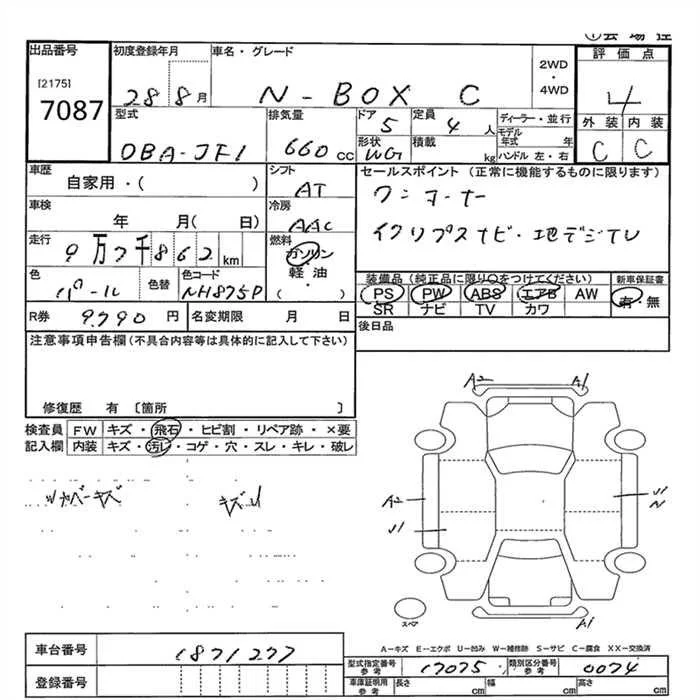 ①会場控
出品番号
[2175]
7087
初度登録年月
28 8月
車名・グレード
N-BOX C
2WD
・
4WD
評価点
4
型式
DBA-JF1
排気量
660 CC
ドア
5
定員
4 人
形状
WG
積載
kg
ディーラー・並行
モデル
年式 年
ハンドル 左・右
外装 内装
C C
車歴
自家用・( )
シフト
AT
車検
年 月( 日)
冷房
AAC
走行
9万7千862 km
燃料
ガソリン
軽油
・
( )
セールスポイント (正常に機能するものに限ります)
ワンオーナー
イクリプスナビ・地デジTV
色
パール
色替
色コード
NH875P
装備品 (純正品に限り○をつけてください)
PS PW ABS エアB AW
SR ナビ TV カワ
新車保証書
有・無
R券 9.790 円
名変期限 月 日
後日品
注意事項申告欄(不具合内容等は具体的に記入して下さい)
修復歴 有 〔箇所 〕
検査員 FW キズ・飛石・ヒビ割・リペア跡・×要
記入欄 内装 キズ・汚レ・コゲ・穴・スレ・キレ・破レ
A2 A1
A2
U1
U1
N
A1
スペア
A-キズ E-エクボ U-凹み W-補修跡 S-サビ C-腐食 XX-交換済
車台番号 1871277
登録番号
型式指定番号
参考
17075
類別区分番号
参考
0074
車庫証明用
参考
長さ cm 幅 cm 高さ cm